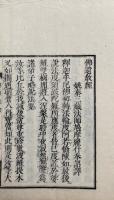 佛遺教經
姚秦三藏法師鳩摩羅什奉詔譯
釋迦牟尼佛初轉法輪度阿若憍陳如最後
說法度須跋陀羅所應度者皆已度訖於娑
羅雙樹間將入涅槃是時中夜寂然無聲爲
諸弟子略說法要
汝等比丘於我滅後當尊重珍敬波羅提木
叉如闇遇明貧人得寶當知此則是汝等大